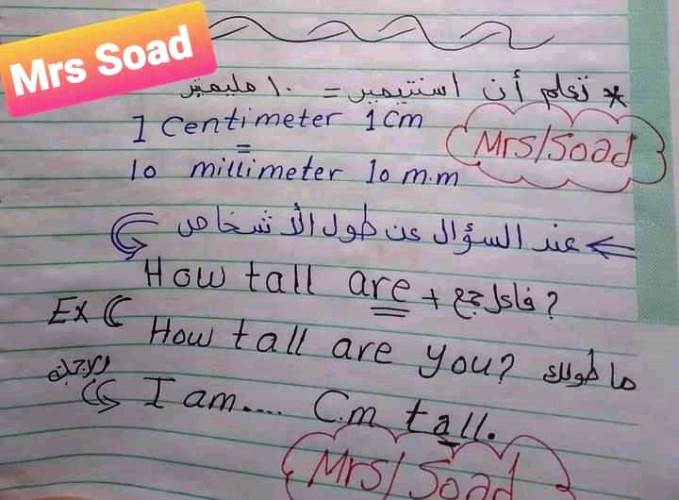 Mrs Soad
* تعلم أن اسنتيمير = ١٠ مليمتر
1 Centimeter 1 Cm
=
Mrs/Soad
10 millimeter 10 m.m
عند السؤال عن طول الأشخاص
How tall are + فاعل جمع ?
Ex
How tall are you? ما طولك
الاجابة
I am.... Cm tall.
Mrs/Soad